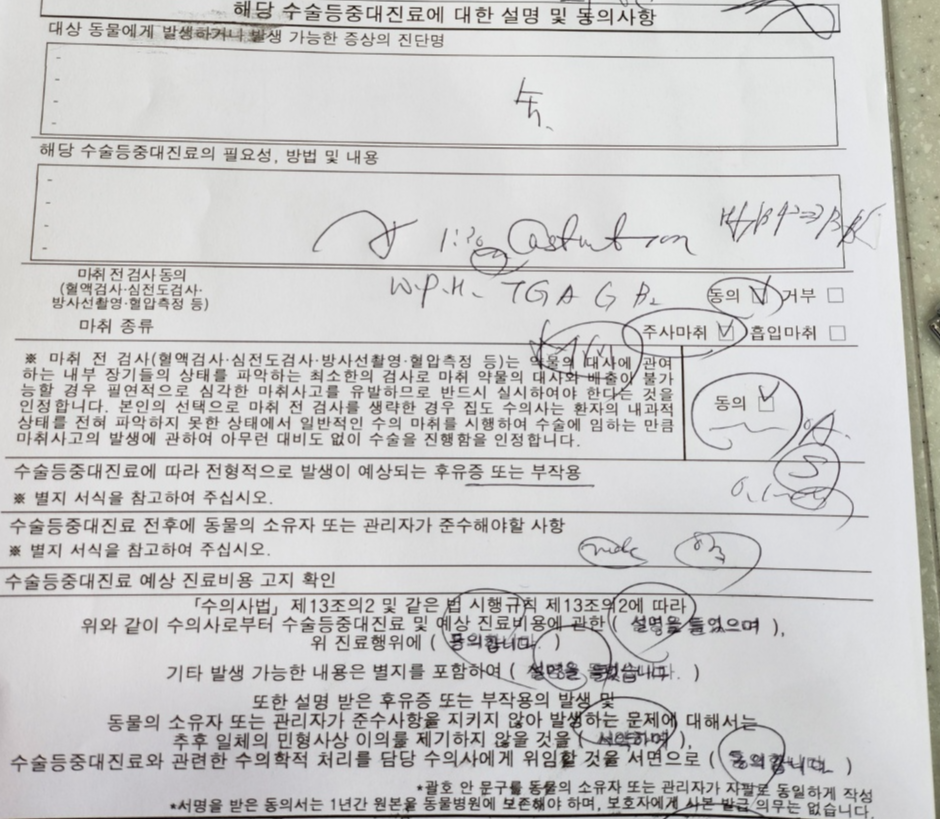 해당 수술등중대진료에 대한 설명 및 동의사항
대상 동물에게 발생하거나 발생 가능한 증상의 진단명
해당 수술등중대진료의 필요성, 방법 및 내용
마취 전 검사 동의
(혈액검사·심전도검사·
방사선촬영·혈압측정 등)
동의 거부
마취 종류
주사마취 흡입마취
※ 마취 전 검사(혈액검사·심전도검사·방사선촬영·혈압측정 등)는 약물의 대사에 관여
하는 내부 장기들의 상태를 파악하는 최소한의 검사로 마취 약물의 대사와 배출이 불가
능할 경우 필연적으로 심각한 마취사고를 유발하므로 반드시 실시하여야 한다는 것을
인정합니다. 본인의 선택으로 마취 전 검사를 생략한 경우 집도 수의사는 환자의 내과적
상태를 전혀 파악하지 못한 상태에서 일반적인 수의 마취를 시행하여 수술에 임하는 만큼
마취사고의 발생에 관하여 아무런 대비도 없이 수술을 진행함을 인정합니다.
동의
수술등중대진료에 따라 전형적으로 발생이 예상되는 후유증 또는 부작용
※ 별지 서식을 참고하여 주십시오.
수술등중대진료 전후에 동물의 소유자 또는 관리자가 준수해야할 사항
※ 별지 서식을 참고하여 주십시오.
수술등중대진료 예상 진료비용 고지 확인
「수의사법」 제13조의2 및 같은 법 시행규칙 제13조의2에 따라
위와 같이 수의사로부터 수술등중대진료 및 예상 진료비용에 관한 ( 설명을 들었으며 ),
위 진료행위에 ( 동의합니다. )
기타 발생 가능한 내용은 별지를 포함하여 ( 설명을 들었습니다. )
또한 설명 받은 후유증 또는 부작용의 발생 및
동물의 소유자 또는 관리자가 준수사항을 지키지 않아 발생하는 문제에 대해서는
추후 일체의 민형사상 이의를 제기하지 않을 것을 ( 서약하며 ),
수술등중대진료와 관련한 수의학적 처리를 담당 수의사에게 위임할 것을 서면으로 ( 동의합니다. )
*괄호 안 문구를 동물의 소유자 또는 관리자가 자필로 동일하게 작성
*서명을 받은 동의서는 1년간 원본을 동물병원에 보존해야 하며, 보호자에게 사본 발급 의무는 없습니다.